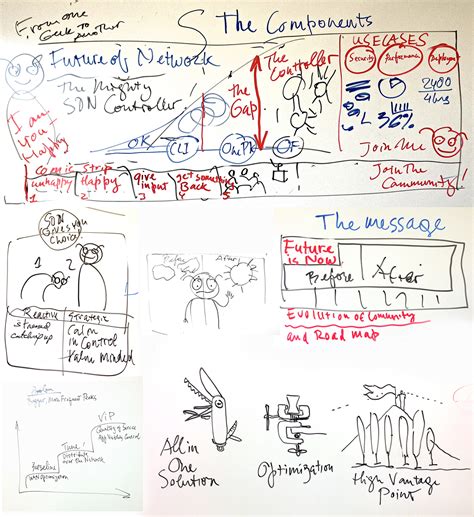 From one
Geek to
another
The Components
Future of Network
The Mighty
SDN Controller
I am
you
Happy
OK
CLI
OnePK
OF
The
Gap
The
Controller
USECASES
Security
Performance
Deployment
2400
4hrs
36%
Join Me
Join The
Community!
Comic Strip
unhappy
Happy
give
input
get something
Back
1 2 3 4 5
SDN
Gives you
Choice
1 2
Reactive
catchup
Strategic
Calm
in Control
Calm minded
Before
After
The message
Future
is Now
Before
After
Evolution of Community
and Road map
VIP
Quality of Service
Time!
over the Network
Baseline
All in
One
Solution
Optimization
High Vantage
Point